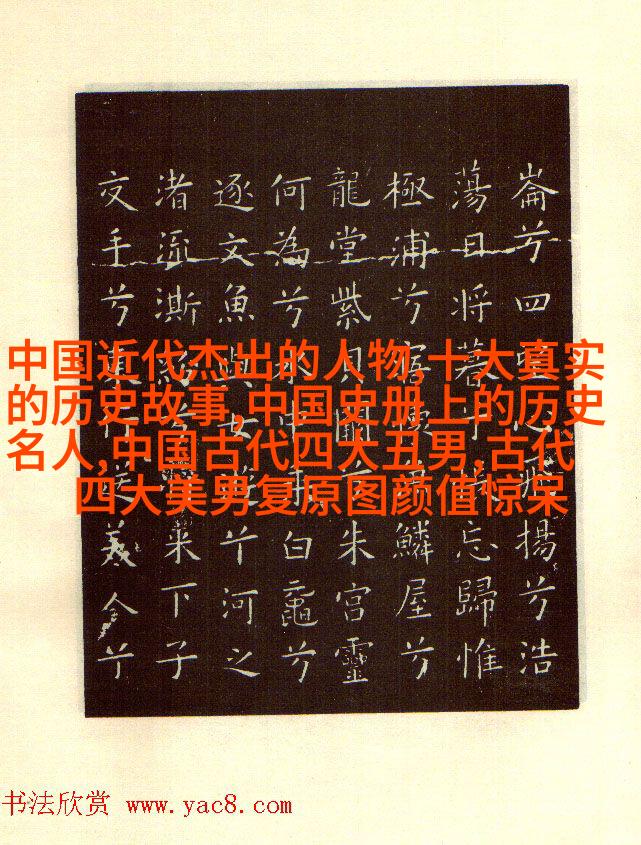 崙兮四望心飛揚兮浩
蕩日將暮兮悵忘歸惟
極浦兮寤懷鱗屋兮
龍堂紫貝闕兮朱宮靈
何為兮水中乘白黿兮
逐文魚與女遊兮河之
渚流澌紛兮來下子
交手兮東行送美人兮
中国近代杰出的人物,十大真实
的历史故事,中国史册上的历史
名人,中国古代四大丑男,古代
四大美男复原图颜值惊呆
书法欣赏 www.yac8.com